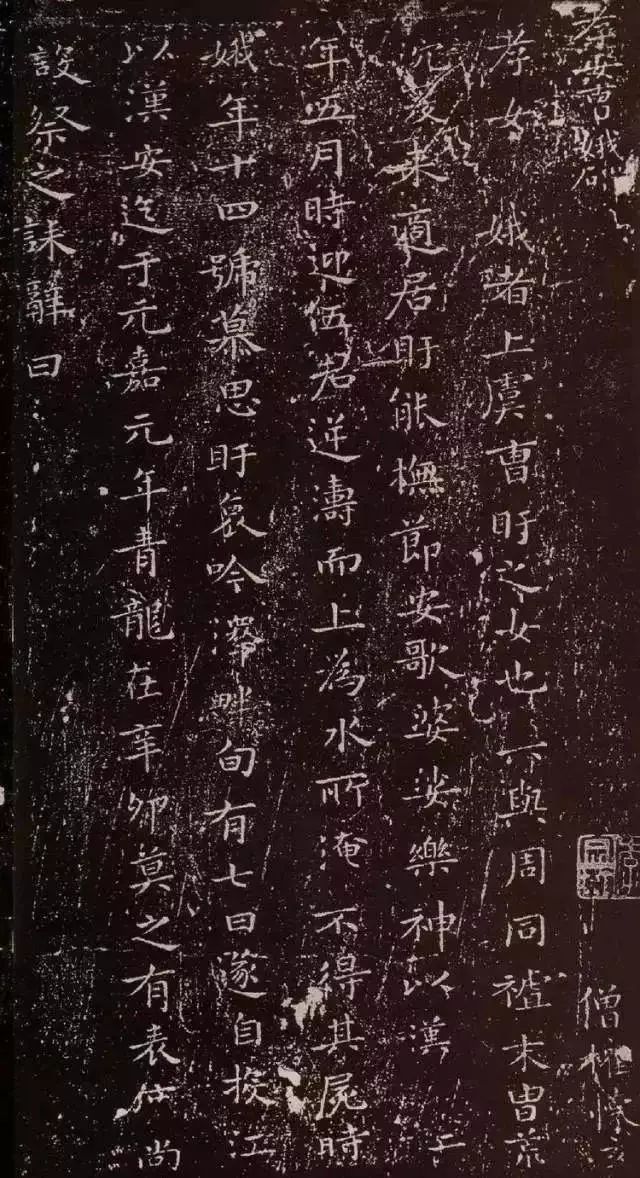 孝女曹娥碑
孝女娥者上虞曹盱之女也其與周同祖末胄荒
沉爰来適居盱能撫節安歌婆娑樂神以漢二
年五月時迎伍君逆濤而上為水所淹不得其屍時
娥年十四號慕思盱哀吟澤畔旬有七日遂自投江
以漢安迄于元嘉元年青龍在辛卯莫之有表度尚
設祭之誄辭曰
僧權